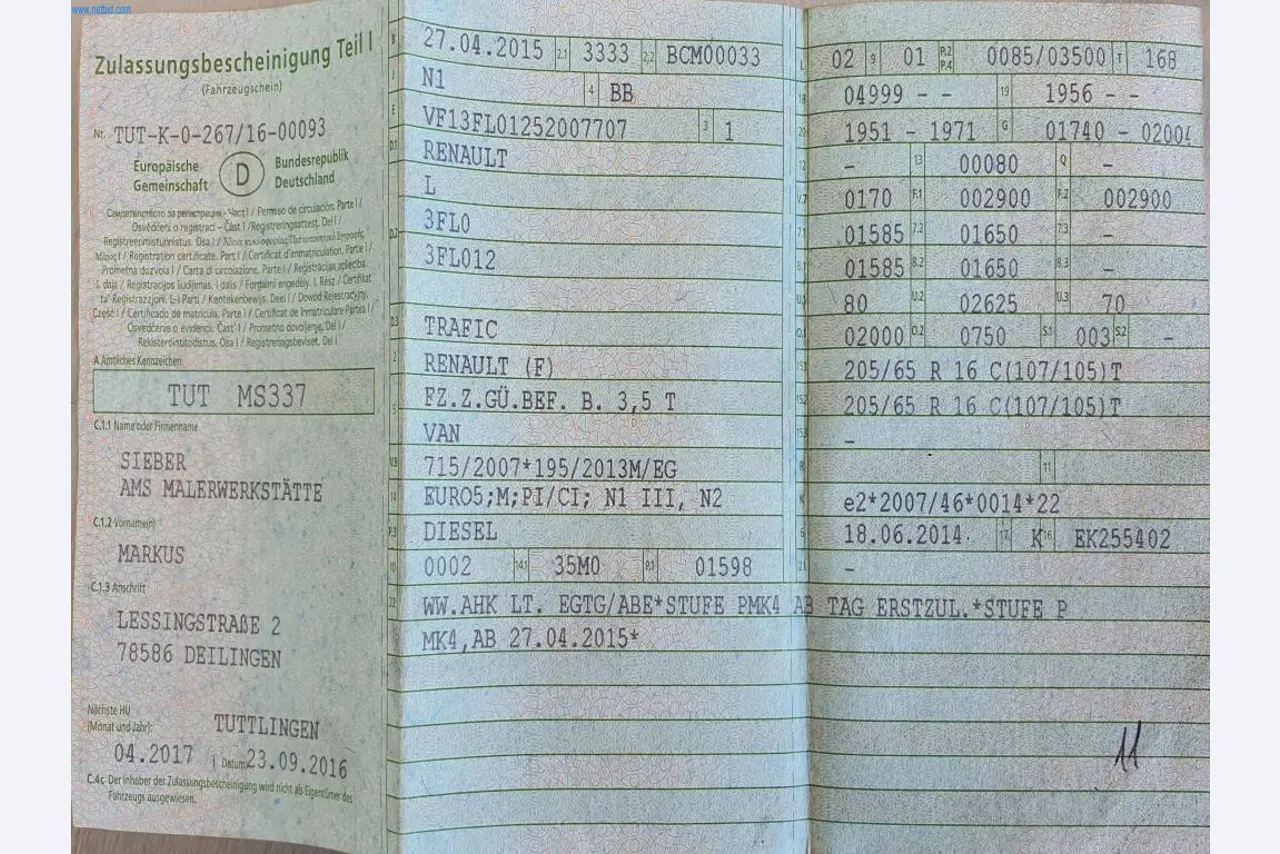 www.netbid.com
Zulassungsbescheinigung Teil I
(Fahrzeugschein)
Nr. TUT-K-0-267/16-00093
Europäische Gemeinschaft
D
Bundesrepublik Deutschland
Свидетелството за регистрация - Част I / Permiso de circulación. Parte I /
Osvědčení o registraci - Část I / Registreringsattest. Del I /
Registreerimistunnistus. Osa I /
Μέρος I / Registration certificate. Part I / Certificat d'immatriculation. Partie I /
Prometna dozvola I / Carta di circolazione. Parte I / Reģistrācijas apliecība.
I. daļa / Registracijos liudijimas. I dalis / Forgalmi engedély. I. Rész / Ċertifikat
ta' Reġistrazzjoni. L-I Parti / Kentekenbewijs. Deel I / Dowód Rejestracyjny.
Część I / Certificado de matrícula. Parte I / Certificat de înmatriculare Partea I /
Osvedčenie o evidencii. Časť I / Prometno dovoljenje. Del I /
Rekisteröintitodistus. Osa I / Registreringsbeviset. Del I
A Amtliches Kennzeichen
TUT MS337
C.1.1 Name oder Firmenname
SIEBER
AMS MALERWERKSTÄTTE
C.1.2 Vorname(n)
MARKUS
C.1.3 Anschrift
LESSINGSTRAßE 2
78586 DEILINGEN
Nächste HU
(Monat und Jahr):
TUTTLINGEN
04.2017 Datum 23.09.2016
C.4c Der Inhaber der Zulassungsbescheinigung wird nicht als Eigentümer des
Fahrzeugs ausgewiesen.
B 27.04.2015 2.1 3333 2.2 BCM00033
J N1 4 BB
E VF13FL01252007707 3 1
D.1 RENAULT
L
D.2 3FL0
3FL012
D.3 TRAFIC
2 RENAULT (F)
5 FZ.Z.GÜ.BEF. B. 3,5 T
VAN
V.9 715/2007*195/2013M/EG
14 EURO5;M;PI/CI; N1 III, N2
P.3 DIESEL
10 0002 14.1 35M0 P.1 01598
22 WW.AHK LT. EGTG/ABE*STUFE PMK4 AB TAG ERSTZUL.*STUFE P
MK4,AB 27.04.2015*
L 02 9 01 P.2 P.4 0085/03500 T 168
18 04999 - - 19 1956 - -
20 1951 - 1971 G 01740 - 0200
12 - 13 00080 Q -
V.7 0170 F.1 002900 F.2 002900
7.1 01585 7.2 01650 7.3 -
8.1 01585 8.2 01650 8.3 -
U.1 80 U.2 02625 U.3 70
O.1 02000 O.2 0750 S.1 003 S.2 -
15.1 205/65 R 16 C(107/105)T
15.2 205/65 R 16 C(107/105)T
15.3 -
R 11
K e2*2007/46*0014*22
6 18.06.2014 17 K 16 EK255402
21 -